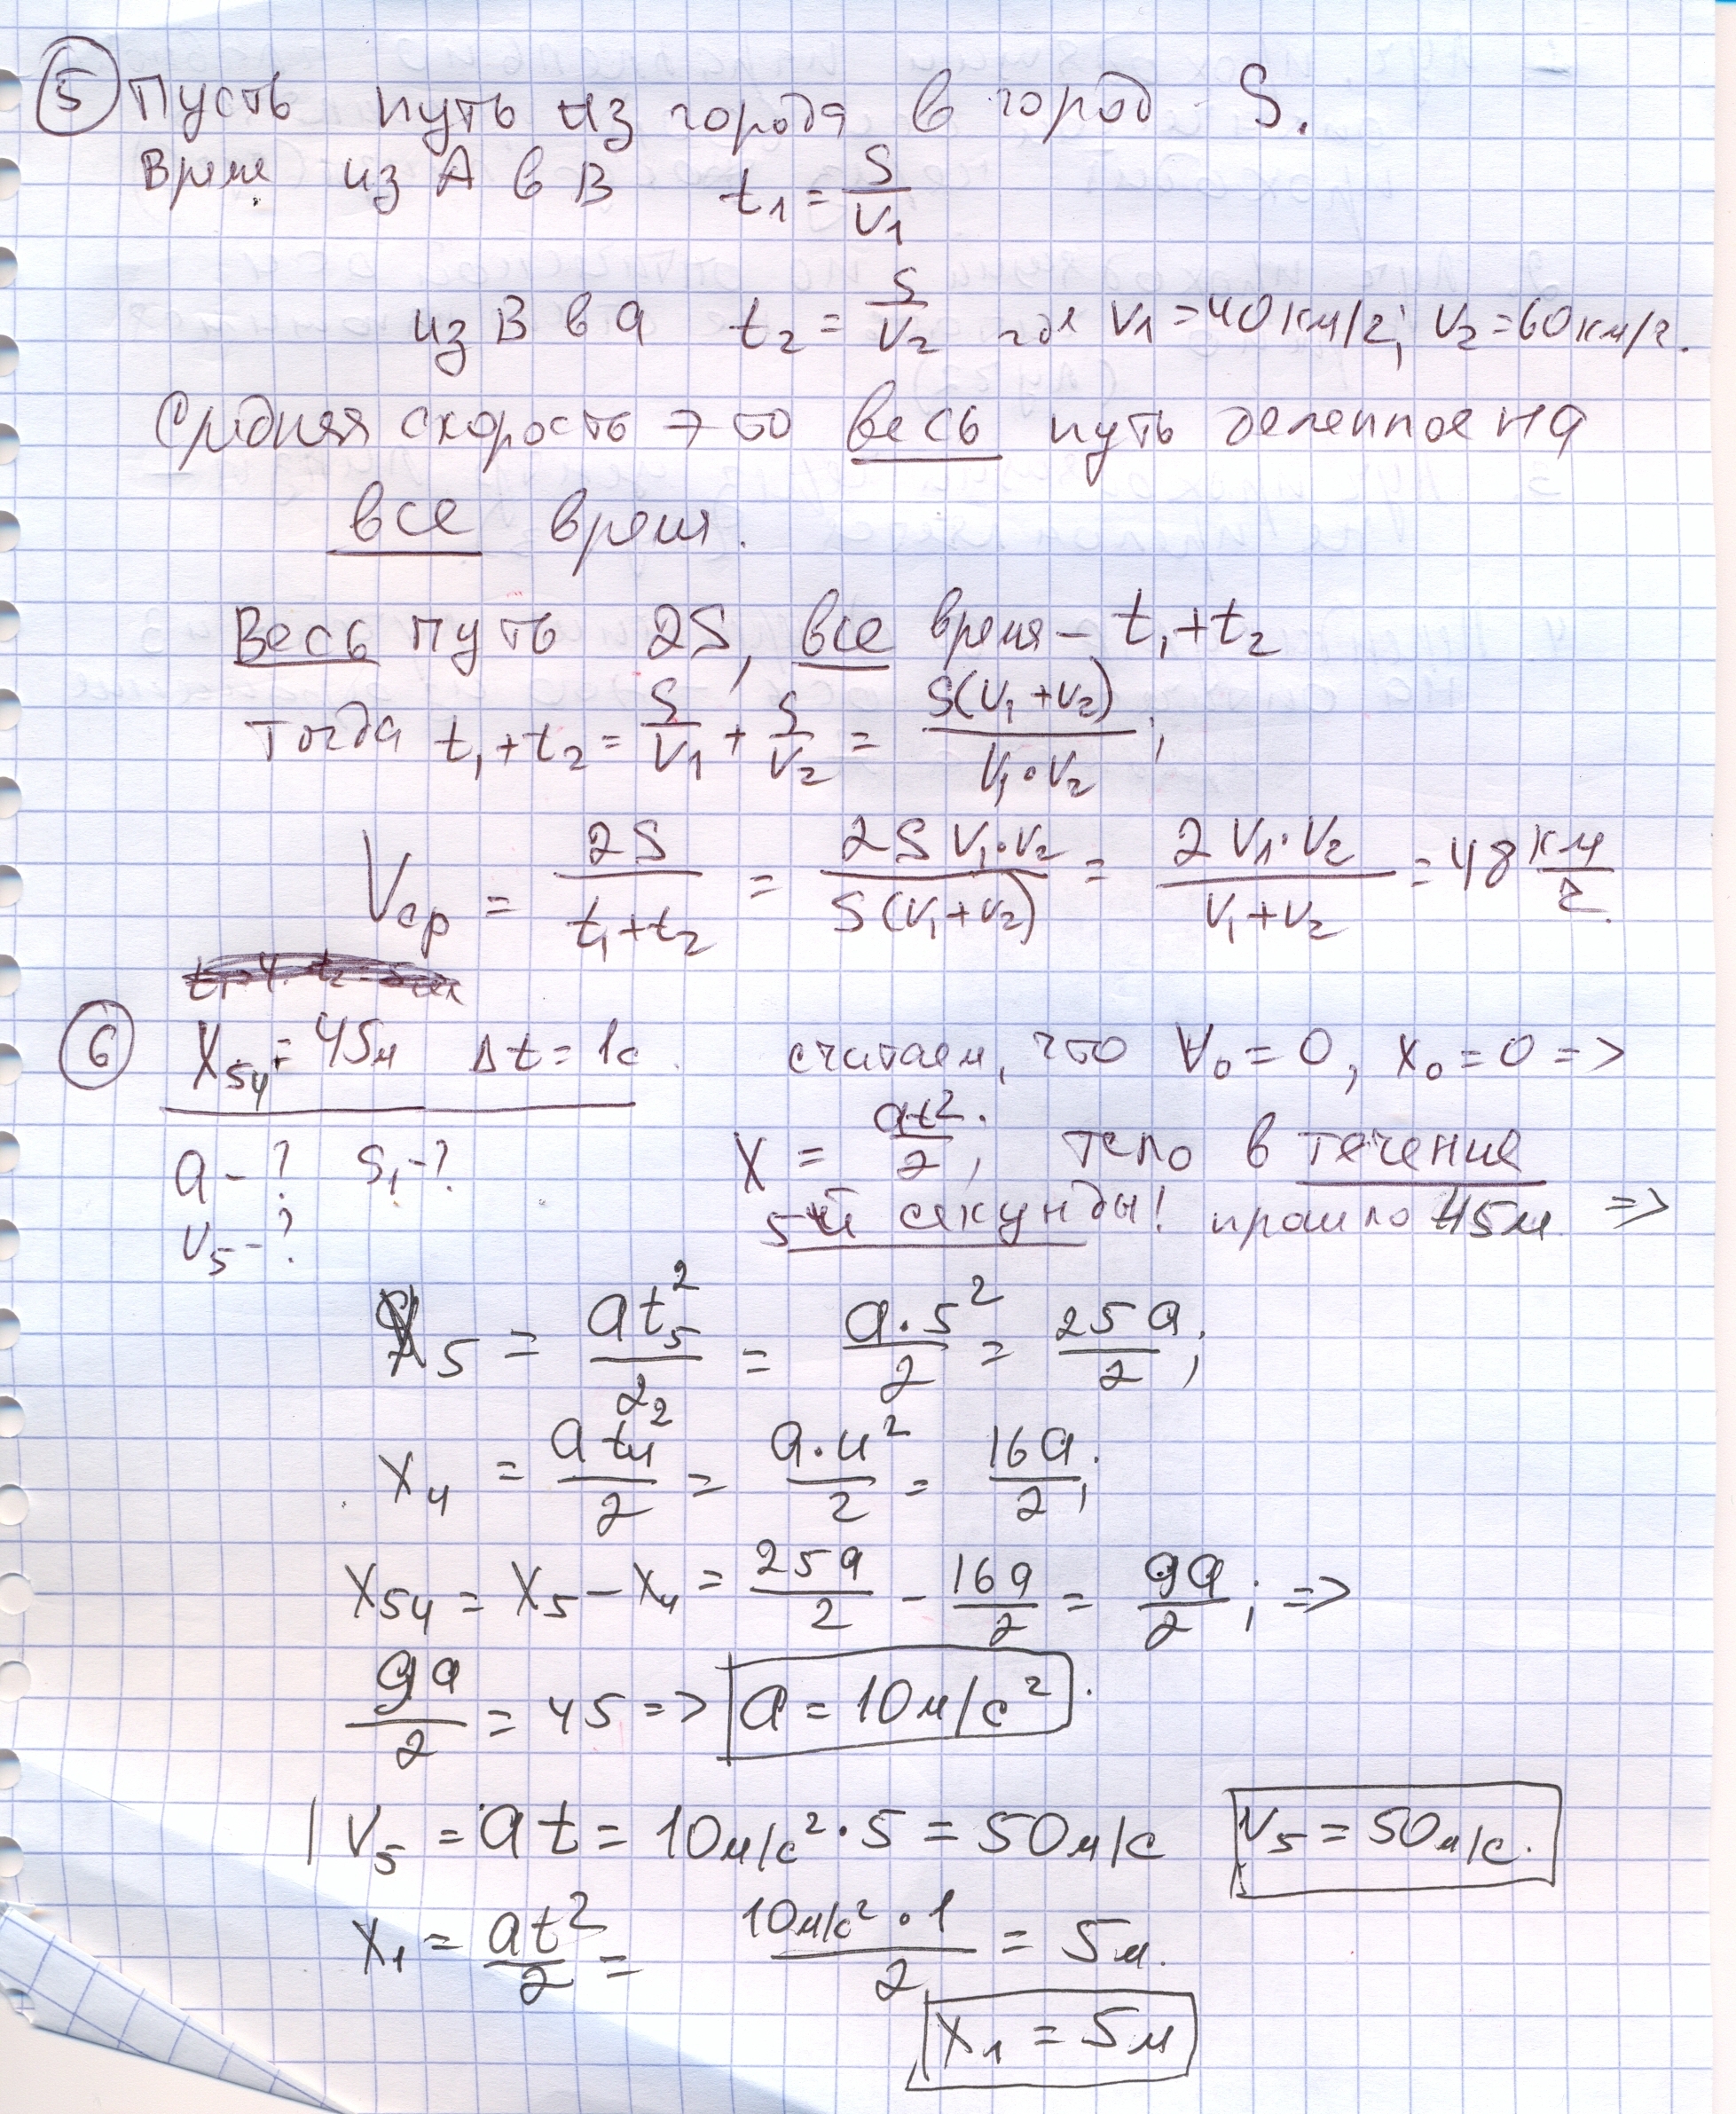 5 Пусть путь из города в город S.
Время из A в B t₁ = S/V₁
из B в A t₂ = S/V₂ где V₁ = 40 км/г; V₂ = 60 км/г.
Средняя скорость это весь путь деленное на
все время.
Весь путь 2S, все время – t₁ + t₂
тогда t₁ + t₂ = S/V₁ + S/V₂ = S(V₁ + V₂)/V₁·V₂;
Vср = 2S/(t₁ + t₂) = 2S V₁·V₂/S(V₁ + V₂) = 2V₁·V₂/(V₁ + V₂) = 48 км/г.
6 X₅₄ = 45м Δt = 1с. считаем, что V₀ = 0, x₀ = 0 =>
a – ? S₁ – ? X = at²/2; тело в течение
V₅ – ? 5й секунды! прошло 45м =>
X₅ = at₅²/2 = a·5²/2 = 25a/2;
X₄ = at₄²/2 = a·4²/2 = 16a/2;
X₅₄ = X₅ – X₄ = 25a/2 – 16a/2 = 9a/2; =>
9a/2 = 45 => a = 10м/с².
V₅ = at = 10м/с²·5 = 50м/с V₅ = 50м/с.
X₁ = at²/2 = 10м/с²·1/2 = 5м.
X₁ = 5м